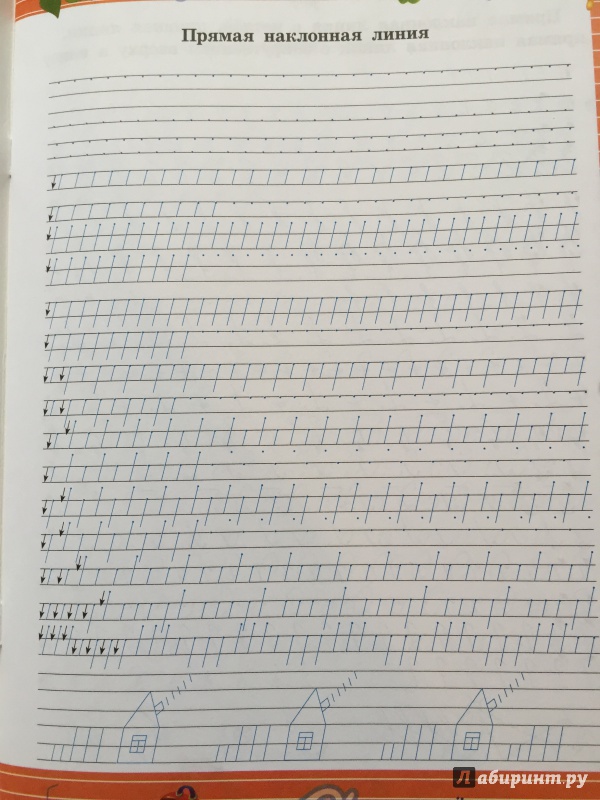 Прямая наклонная линия
Лабиринт.ру